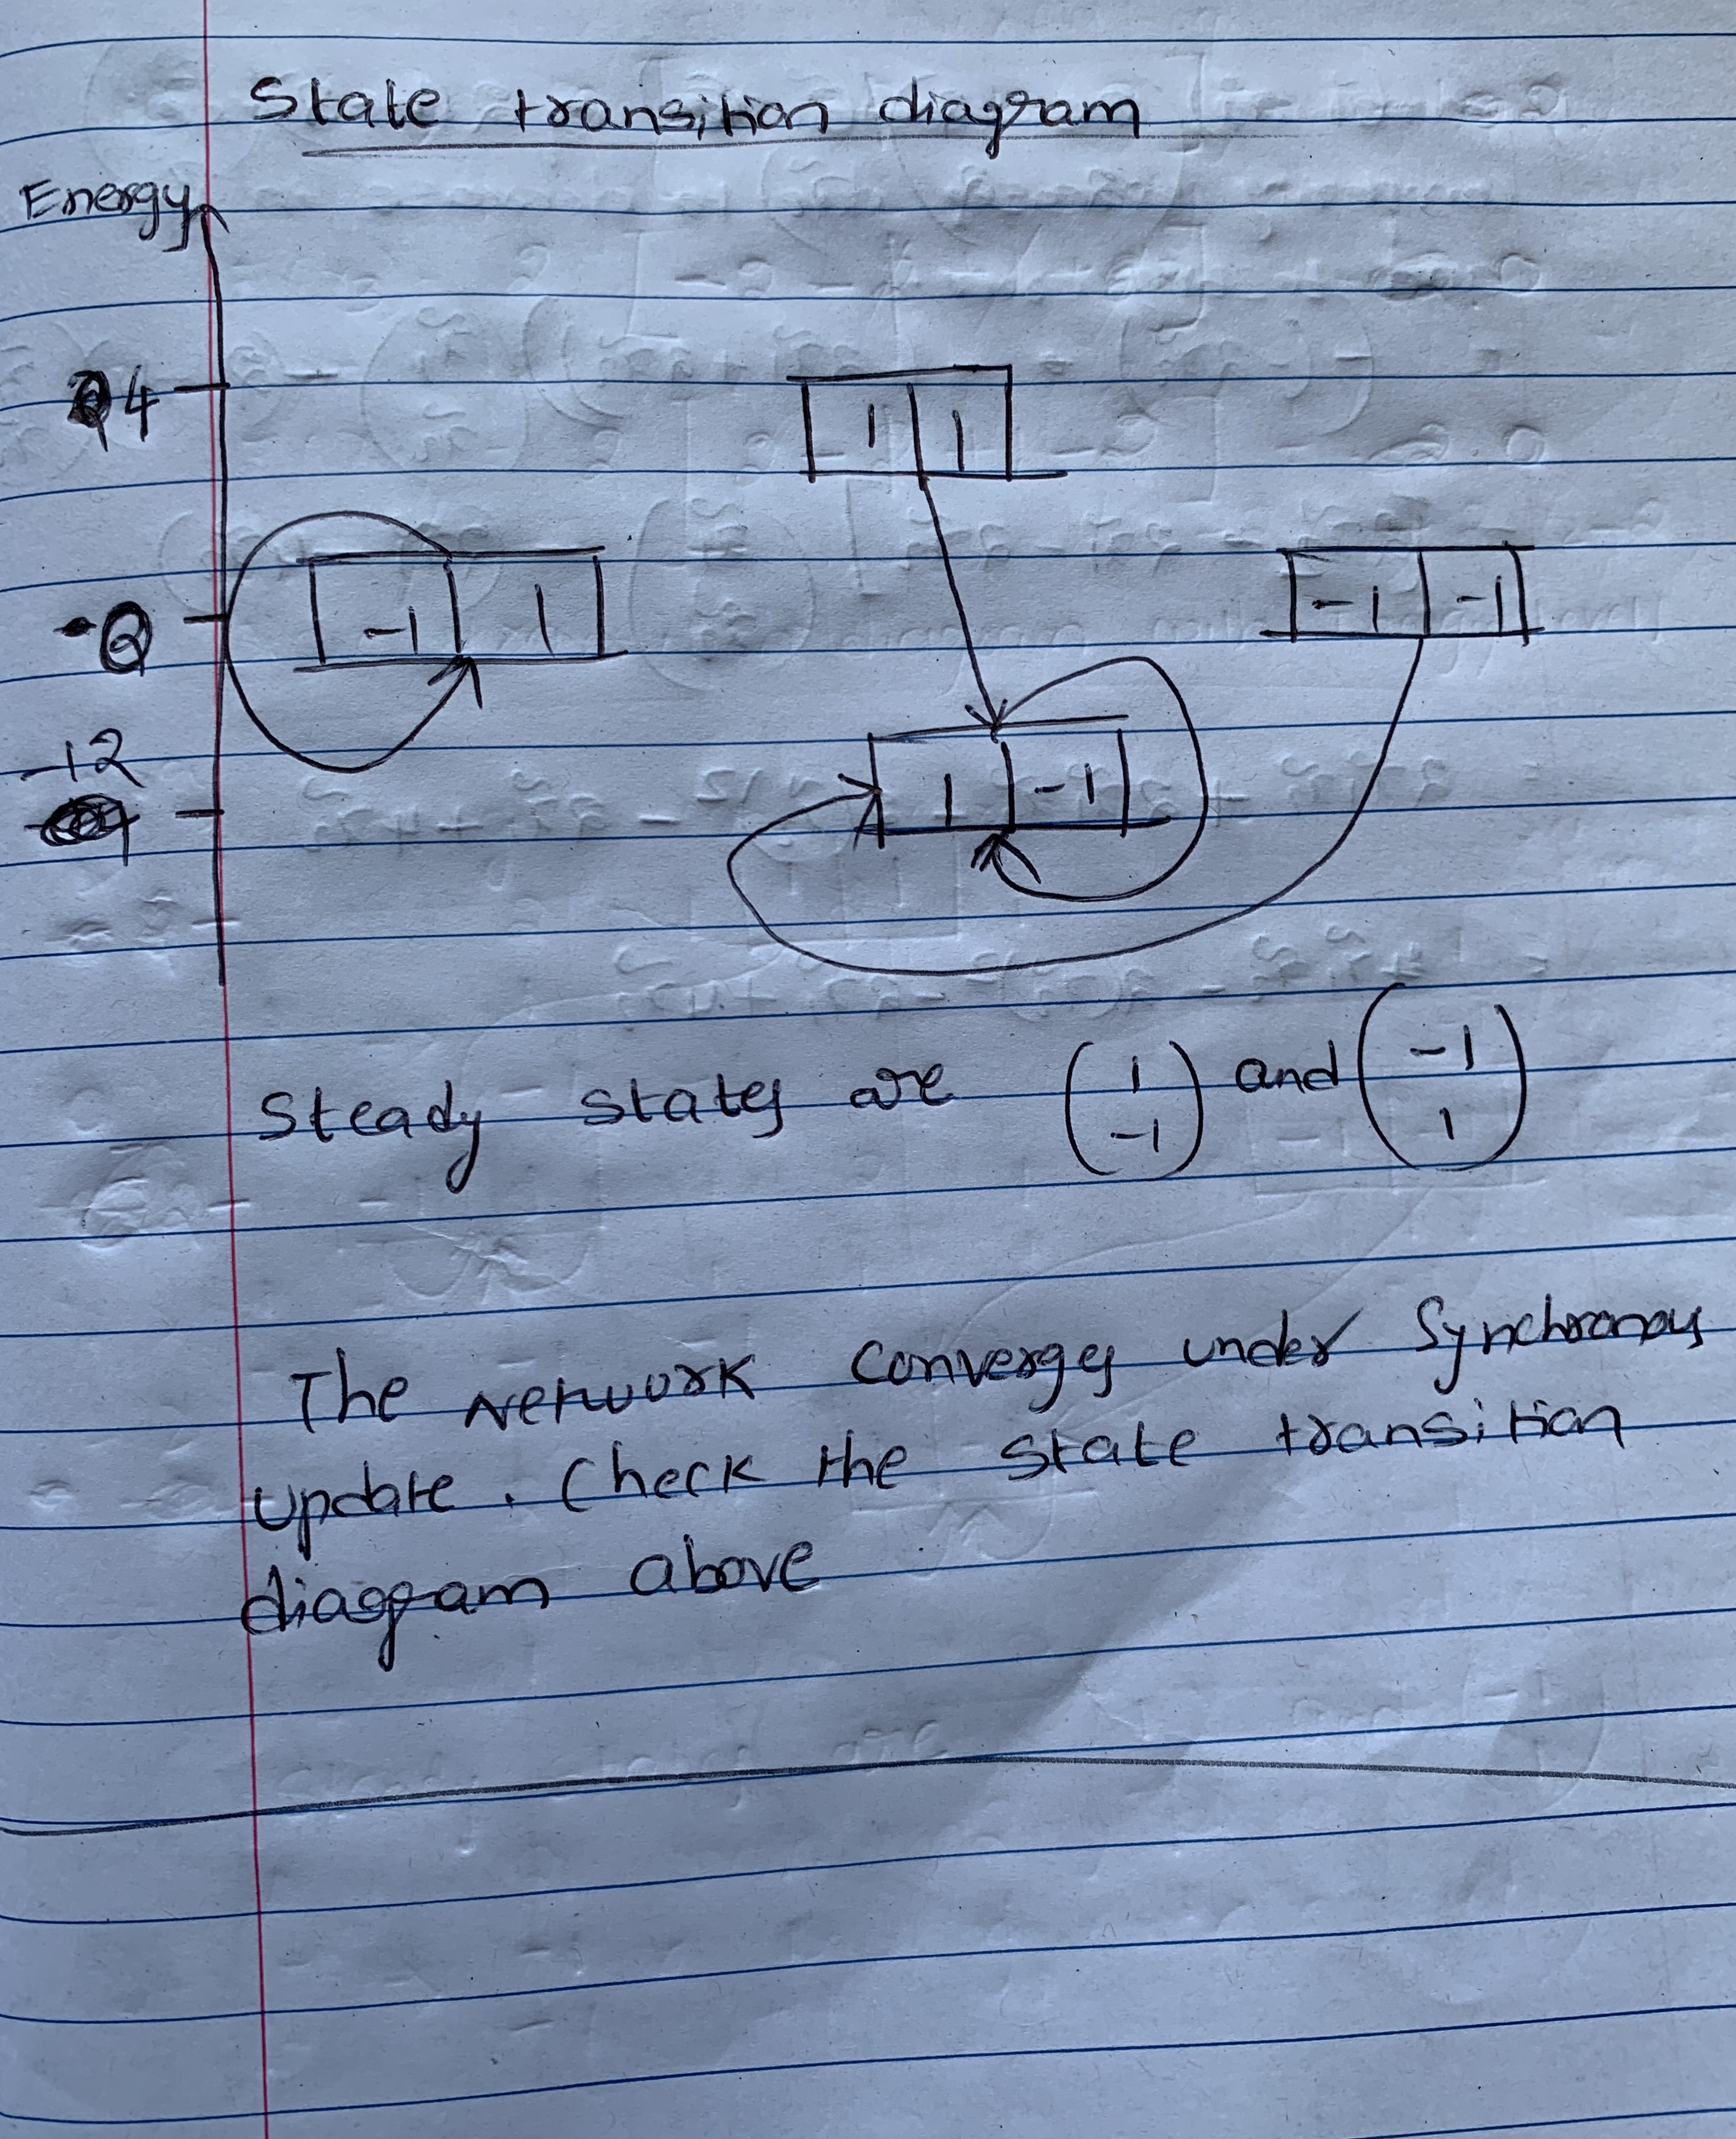 State transition diagram
Energy
4
1 1
-1 1
-1 -1
-12
1 -1
Steady states are (1 -1) and (-1 1)
The Network Converges under Synchronous
update. Check the state transition
diagram above